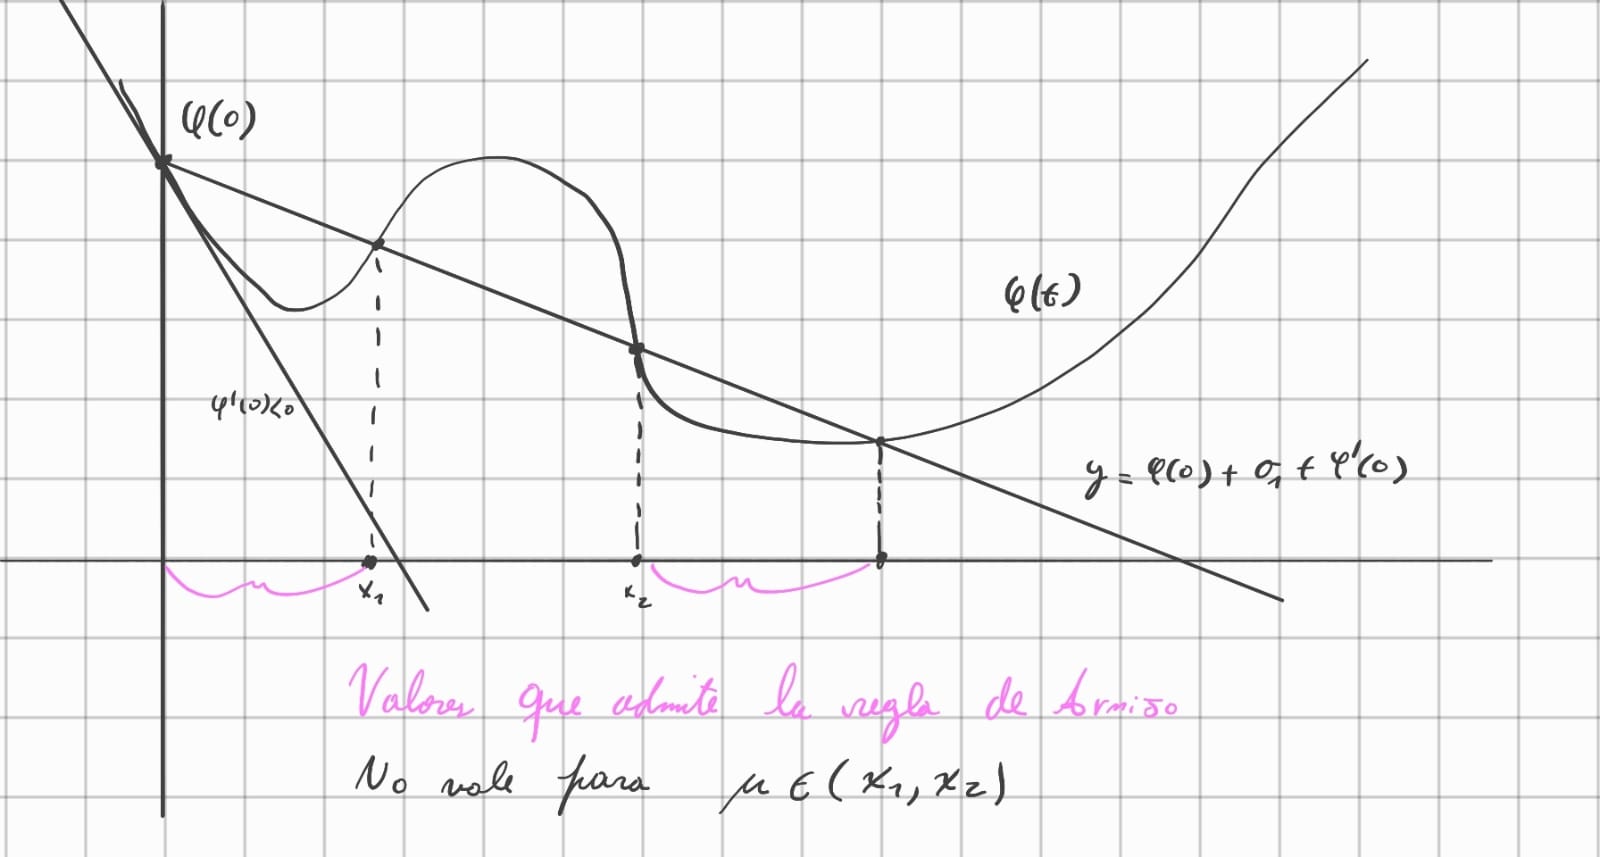 φ(0)
φ(t)
φ'(0)<0
y = φ(0) + σ₁ t φ'(0)
x₁
x₂
Valores que admite la regla de Armijo
No vale para μ ∈ (x₁, x₂)